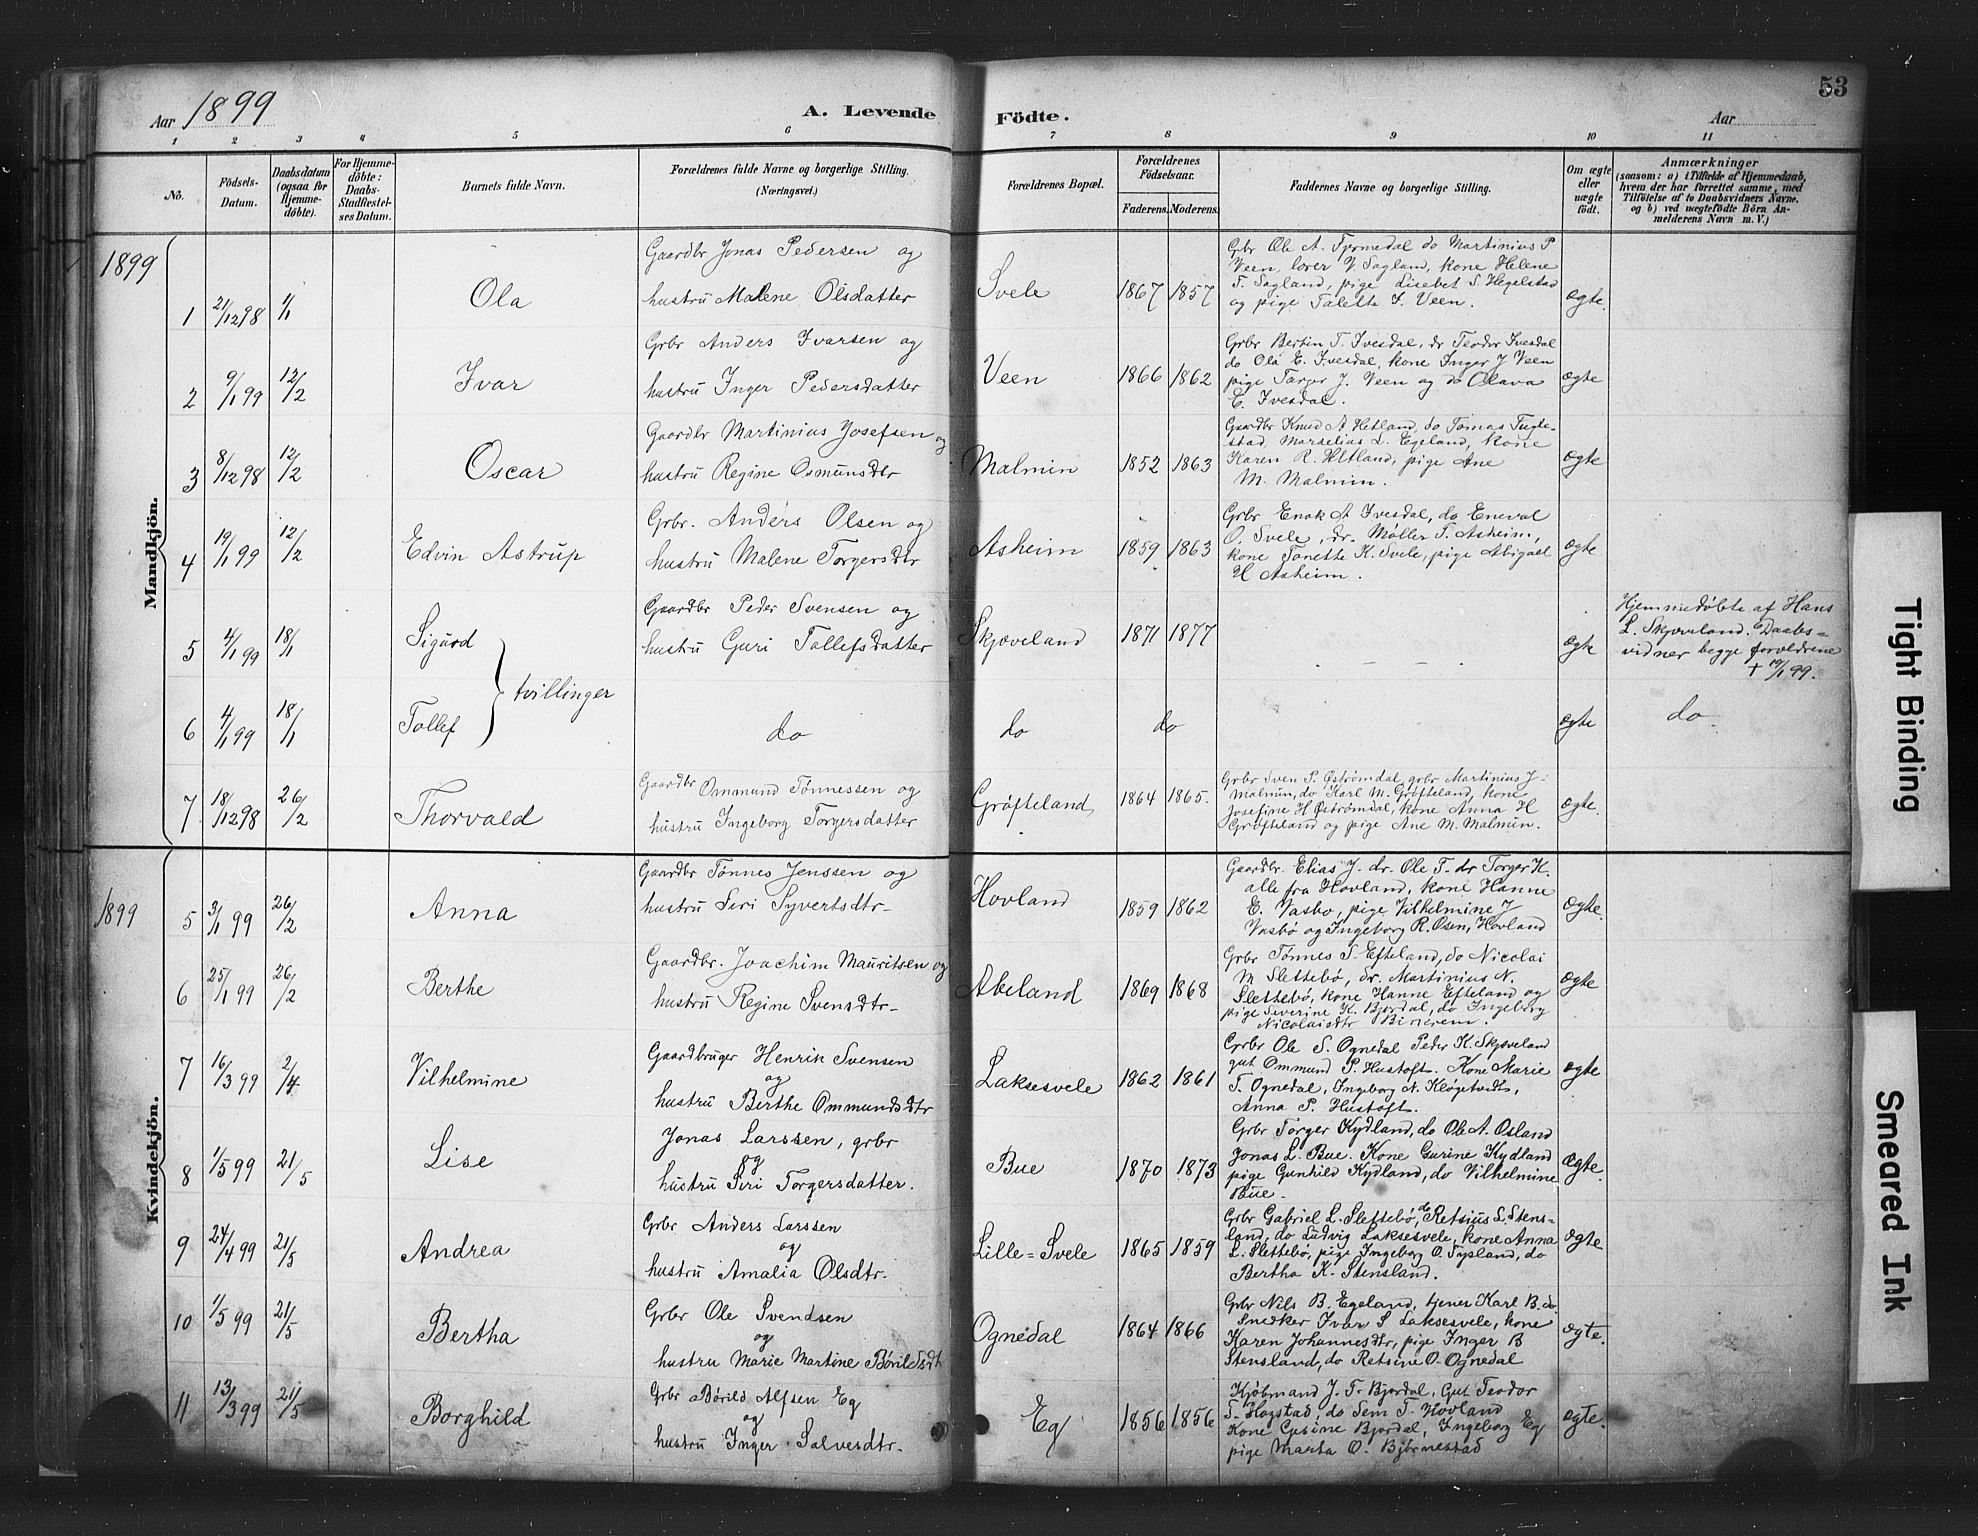 Aar 1899
A. Levende
Födte.
Aar
53
1 2 3 4 5 6 7 8 9 10 11
No.
Födsels-Datum.
Daabsdatum (ogsaa for Hjemmedöbte).
For Hjemmedöbte: Daabs-Stadfæstelses Datum.
Barnets fulde Navn.
Forældrenes fulde Navne og borgerlige Stilling.
(Næringsvei.)
Forældrenes Bopæl.
Forældrenes Födselsaar.
Faderens. Moderens.
Faddernes Navne og borgerlige Stilling.
Om ægte eller uægte födt.
Anmærkninger
(saasom: a) i Tilfælde af Hjemmedaab,
hvem der har forrettet samme, med
Tilföielse af to Daabsvidners Navne.
og b) ved uægtefödte Börn Anmelderens Navn m. V.)
Mandkjön.
1899
1 2/12 98 1/1 Ola
Gaardbr Jonas Pedersen og
hustru Malene Olsdatter
Svele 1867 1857
Veen, lærer V Sagland, kone Helene
T. Sagland, pige Lisebet S. Hegelstad
og pige Talette I. Veen.
ægte.
2 9/1 99 12/2 Ivar
Grbr Anders Ivarsen og
hustru Inger Pedersdatter
Veen 1866 1862
Grbr Bertin T. Ivesdal, dr Teodor Ivesdal
do Ola E. Ivesdal, kone Inger J Veen
pige Torger J. Veen og do Olava
E. Ivesdal.
ægte
3 8/12 98 12/2 Oscar
Gaardbr Martinius Josefsen og
hustru Regine Osmunsdtr
Malmin 1852 1863
Gaardbr Knud A Hetland, do Tomas Tugle-
stad, Marselius L. Egeland, kone
Karen R. Hetland, pige Ane
M. Malmin.
ægte
4 19/1 99 12/2 Edvin Astrup
Grbr. Anders Olsen og
hustru Malene Torgersdtr
Asheim 1859 1863
Grbr Enok A Ivesdal, do Eneval
O. Svele, dr. Møller T. Asheim,
kone Tonette K. Svele, pige Abigael
H Asheim.
ægte
5 4/1 99 18/1 Sigurd
tvillinger
Gaardbr Peder Svensen og
hustru Guri Tollefsdatter
Skjæveland 1871 1877
- - -
ægte
Hjemmedøbte af Hans
L. Skjæveland. Daabs=
vidner begge forældrene
† 19/1 99.
6 4/1 99 18/1 Tollef
do do do ægte do
7 18/12 98 26/2 Thorvald
Gaardbr Ommund Tönnessen og
hustru Ingeborg Torgersdatter
Gröfteland 1864 1865.
Grbr Sven P. Østrømdal, grbr Martinius J.
Malmin, do Karl M. Gröfteland, kone
Josefine H Østrømdal, kone Anna H
Gröfteland og pige Ane M. Malmin.
ægte.
Kvindekjön.
1899
5 3/1 99 26/2 Anna
Gaardbr Tönnes Jenssen og
hustru Siri Syvertsdtr
Hovland 1859 1862
Gaardbr. Elias J. dr. Ole T. dr Torger K.
alle fra Hovland, kone Hanne
E. Vasbø, pige Vilhelmine J
Vasbö og Ingeborg R. Osen, Hovland
ægte.
6 25/1 99 26/2 Berthe
Gaardbr. Joachim Mauritsen og
hustru Regine Svensdtr
Abeland 1869 1868
Grbr Tönnes S. Efteland, do Nicolai
M Slettebö, dr. Martinius N.
Slettebö, kone Hanne Efteland og
pige Severine K. Bjordal, do Ingeborg
Nicolaisdtr
ægte
7 16/3 99 2/4 Vilhelmine
Gaardbruger Henrik Svensen
og
hustru Berthe Ommundsdtr
Laksesvele 1862 1861
Grbr Ole S. Ognedal Peder K. Skjæveland
gut Ommund P. Hustoft. Kone Marie
T. Ognedal, Ingeborg N. Kløgetvedt,
Anna P. Hustoft.
ægte
8 1/5 99 21/5 Lise
Jonas Larssen, grbr
og
hustru Siri Torgersdatter.
Bue 1870 1873
Grbr Torger Kydland, do Ole A. Osland
Jonas L. Bue. Kone Gurine Kydland
pige Gunhild Kydland, do Vilhelmine
Bue.
Ægte.
9 24/4 99 21/5 Andrea
Grbr Anders Larssen
og
hustru Amalia Olsdtr.
Lille=Svele 1865 1859
Grbr Gabriel L. Slettebö, Retsius L. Stens=
land, do Ludvig Laksesvele, kone Anna
L. Slettebö, pige Ingeborg O. Sysland, do
Bertha K. Stensland.
ægte
10 1/5 99 21/5 Bertha
Grbr Ole Svendsen
og
hustru Marie Martine Börildsdt
Ognedal 1864 1866
Grbr Nils B. Egeland, tjener Karl B. do.
Snedker Ivar S Laksesvele, kone
Karen Johannesdtr, pige Inger B
Stensland, do Retsine O. Ognedal
ægte.
11 13/3 99 21/5 Borghild
Grbr Börild Alfsen Eg
og
hustru Inger Salvesdtr.
Eg 1856 1856
Kjöbmand J. T. Bjordal, Gut Teodor
T. Hogstad, do Sem T. Hovland
Kone Gusine Bjordal, Ingeborg Eg
pige Marta O. Björnestad
ægte.
Tight Binding
Smeared Ink